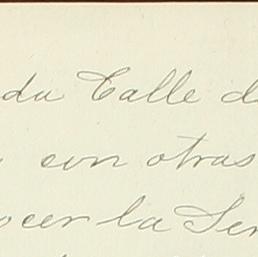 da Calle d
con otras
ocer la Ser